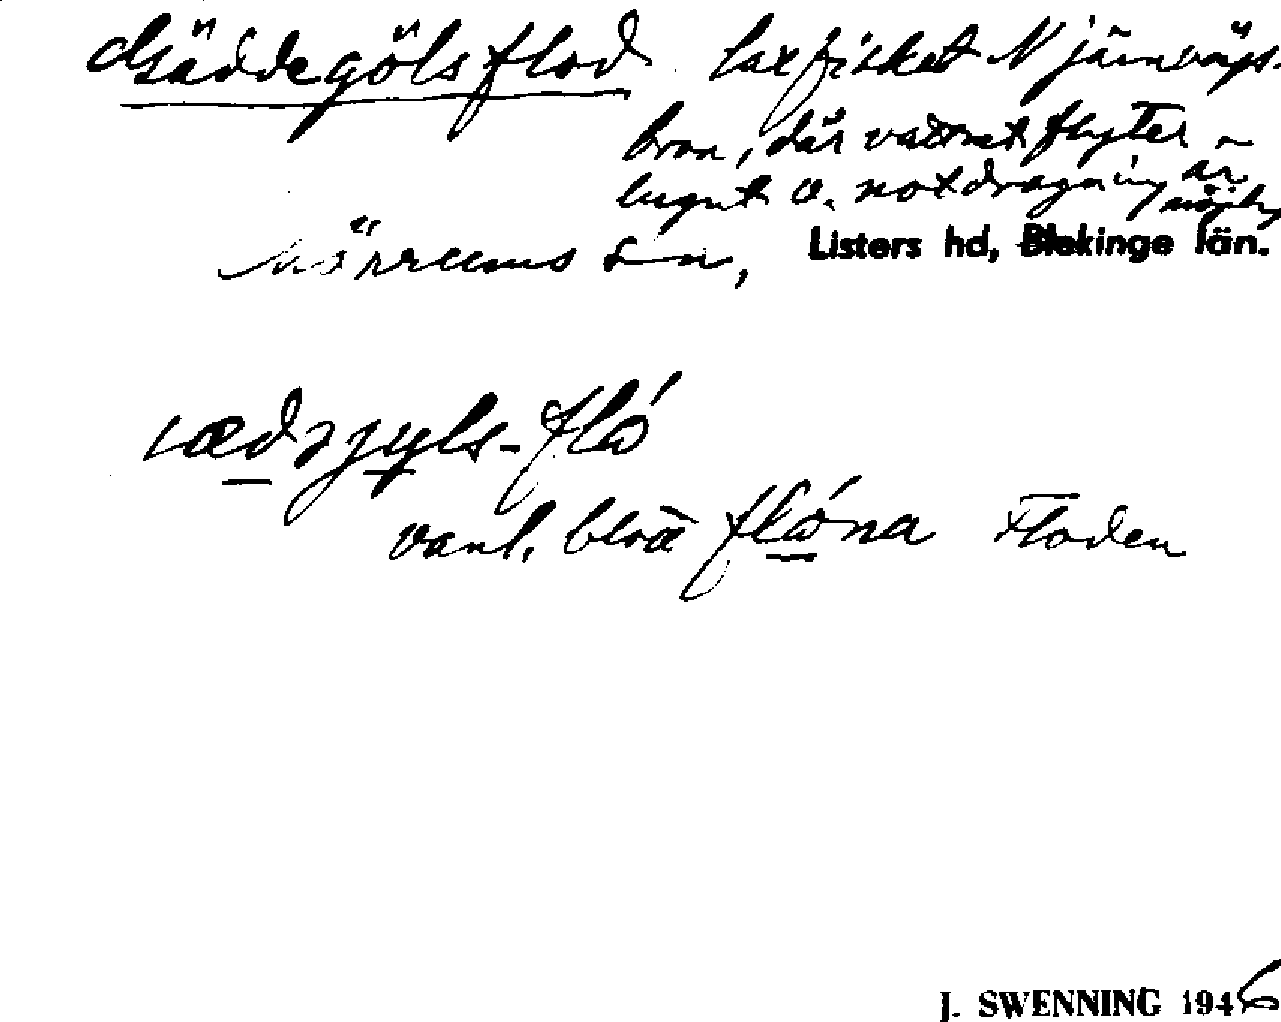 Gäddegöls flod laxfisket N järnvägs-
bron, där vattnet flyter
lugnt o. notdragning är
möjlig
Mörrums sn, Listers hd, Blekinge län.
vanl. blott flóna Floden
J. SWENNING 1946